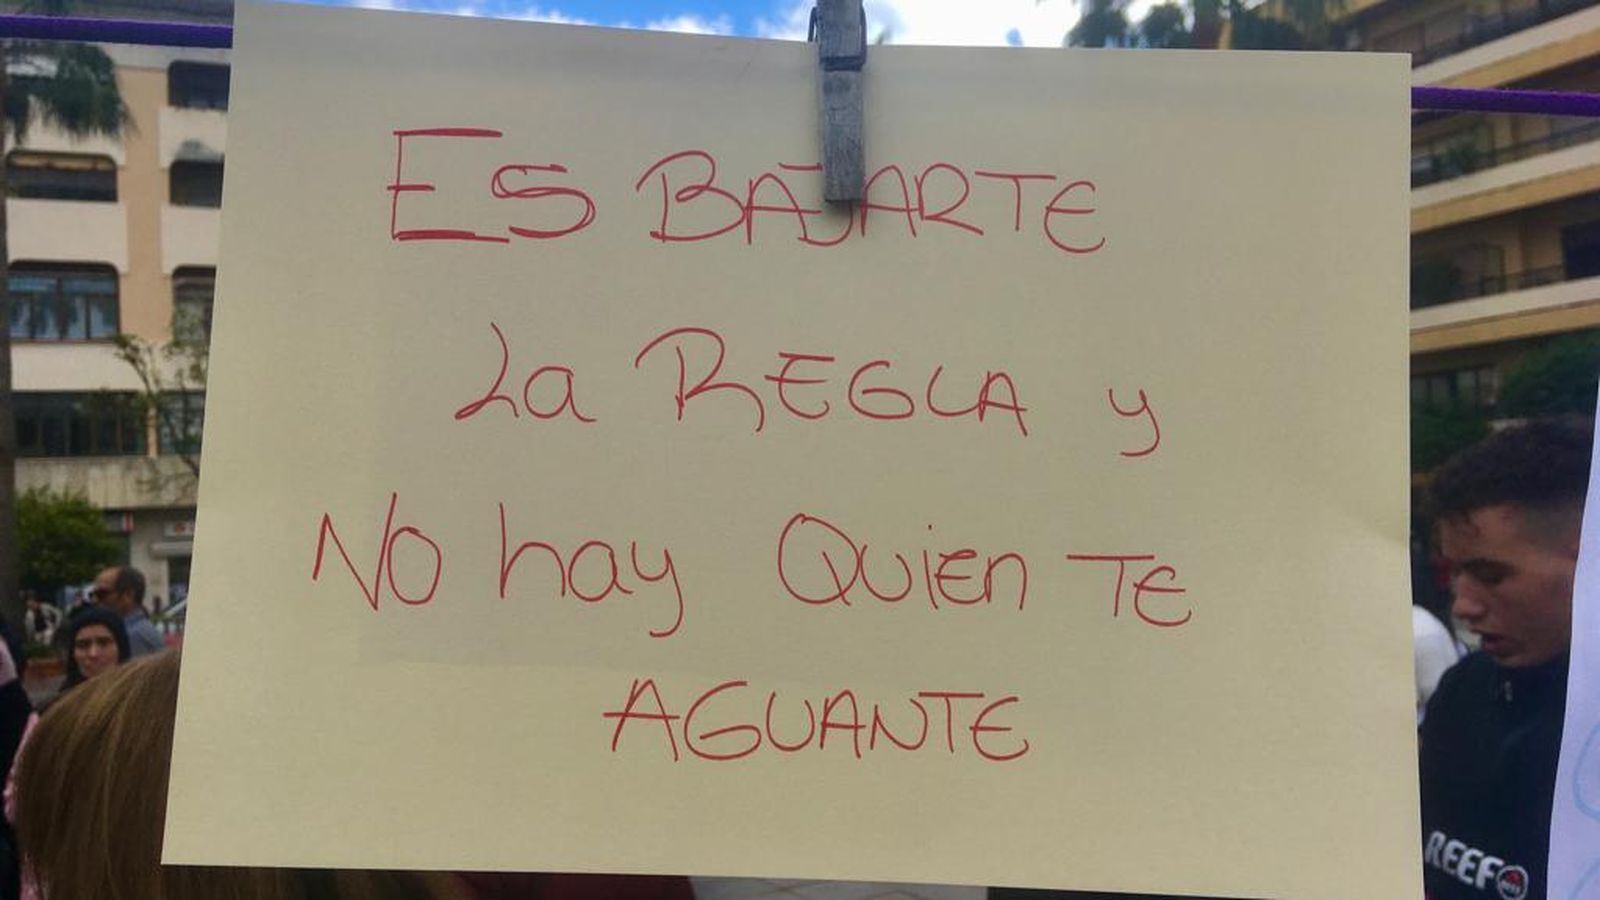 ES BAJARTE
La REGLA y
NO hay QUIEN TE
AGUANTE
REEF